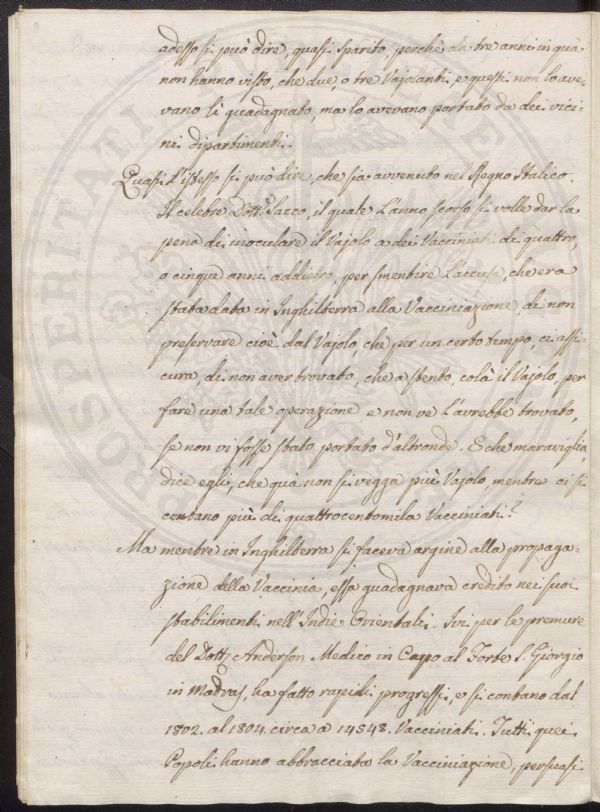 adesso si può dire, quasi sparito perche da tre anni in quà
non hanno visto, che due, o tre Vajolanti, e questi non lo ave-
vano lì guadagnato, ma lo avevano portato da dei vici-
ni dipartimenti.
Quasi l'istesso si può dire, che sia avvenuto nel Regno Italico.
Il celebre Dott.r Sacco, il quale l'anno scorso si volle dar la
pena di inoculare il Vajolo a dei Vacciniati di quattro,
o cinque anni addietro, per smentire l'accusa, che era
stata data in Inghilterra alla Vacciniazione, di non
preservare cioè dal Vajolo, che per un certo tempo, ci assi-
cura, di non aver trovato, che a stento, colà il Vajolo, per
fare una tale operazione e non ve l'avrebbe trovato,
se non vi fosse stato portato d'altronde. E che maraviglia,
dice egli, che quà non si vegga più Vajolo, mentre ci si
contano più di quattrocentomila Vacciniati?
Ma mentre in Inghilterra si faceva argine alla propaga-
zione della Vaccinia, essa guadagnava credito nei suoi
stabilimenti nell'Indie Orientali. Ivi per le premure
del Dott. Anderson Medico in Capo al Forte S. Giorgio
in Madras, ha fatto rapidi progressi, e si contano dal
1802. al 1804. circa a 14548. Vacciniati. Tutti quei
Popoli hanno abbracciata la Vacciniazione, persuasi
PROSPERITATI